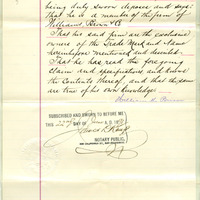 being duly sworn deposes and says:
That he is a member of the firm of
William Bevin & Co
That his said firm are the exclusive
owners of the Trade Mark and Name
hereinbefore mentioned and described
That he has read the foregoing
claim and specifications and knows
the contents thereof, and that the same
are true of his own knowledge
William
SUBSCRIBED AND SWORN TO BEFORE ME
THIS 22nd DAY OF A.D. 18
NOTARY PUBLIC
CALIFORNIA ST., SAN FRANCISCO